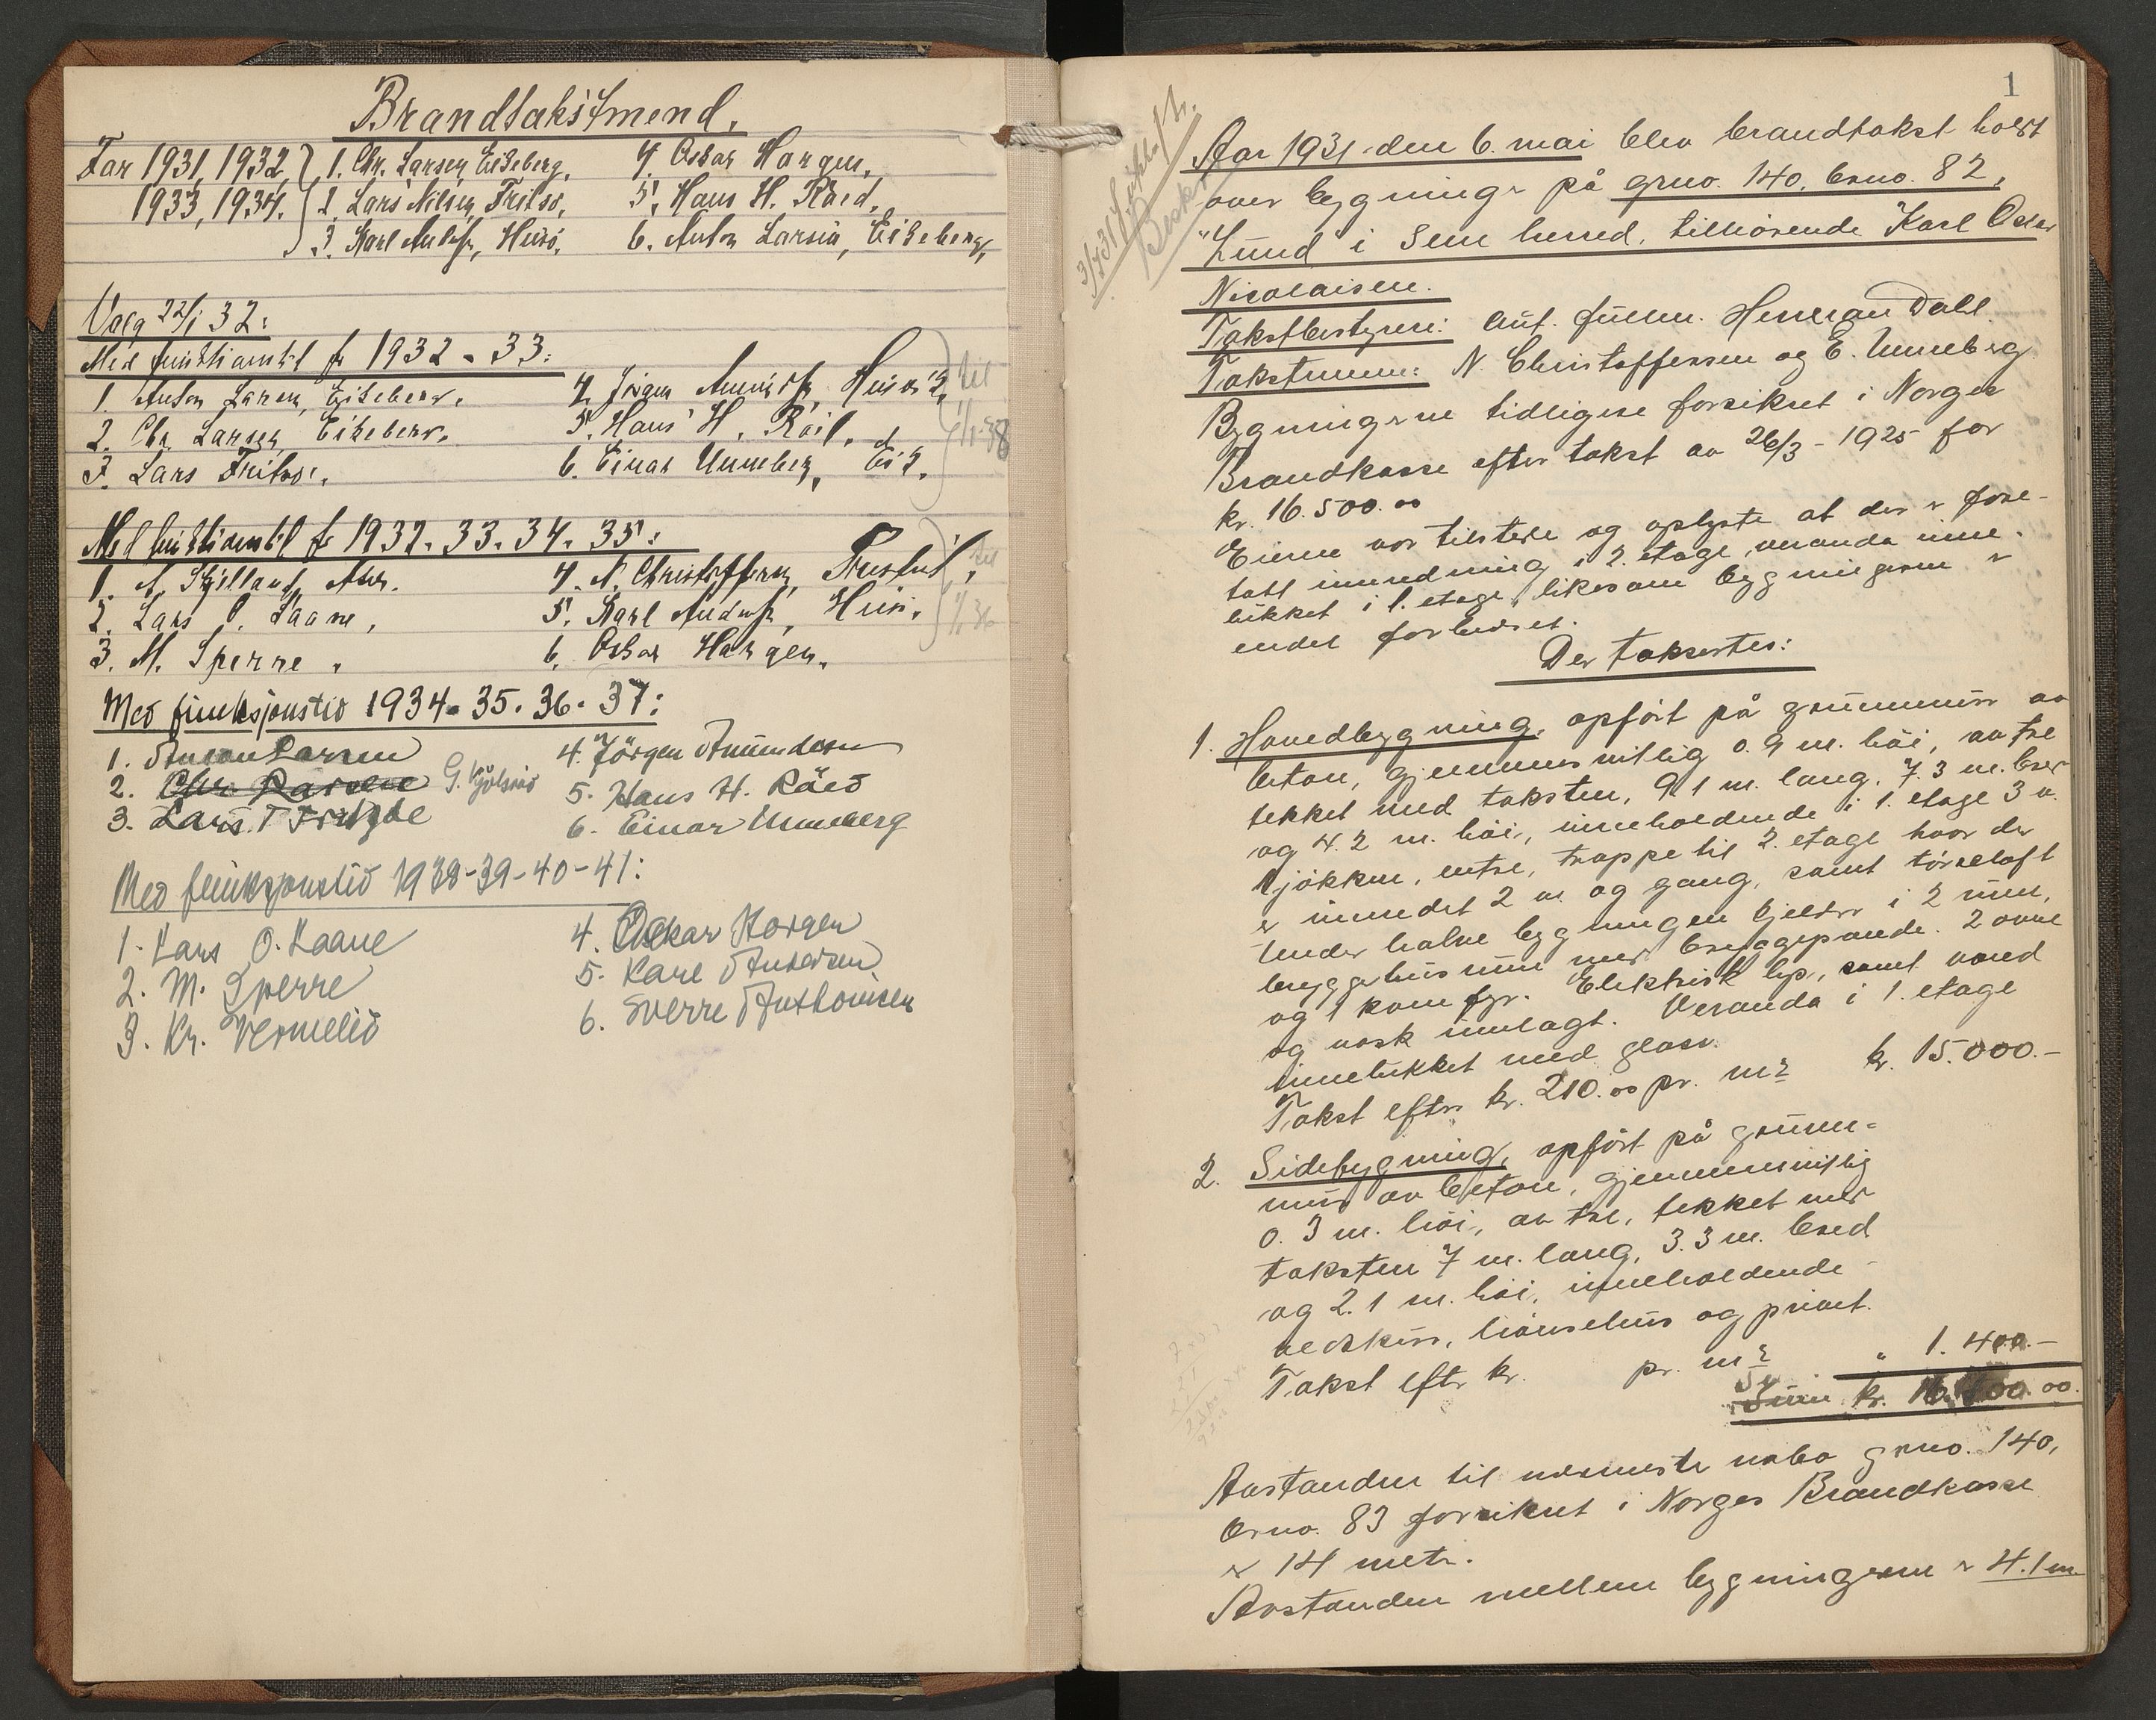 Brandtakstmend.
For 1931, 1932, 1. Chr. Larsen Eikeberg. 4. Oskar Horgen.
1933, 1934. 2. Lars Nilsen Fritsø. 5. Hans H. Råed.
3. Karl Anders, 6. Anton Larsen, Eikeberg.
Valg 22/1 32:
Med funktionstid for 1932-33:
1. Anton Larsen, Eikeberg. 4. Jørgen
2. Chr. Larsen, Eikeberg. 5. Hans H. Råil.
3. Lars Fritsø. 6. Einar Unneberg, Eik.
til
Med funktionstid f 1932. 33. 34. 35:
1. A. 4. N. Christoffersen,
2. Lars O. Laane, 5. Karl Anders,
3. M. Sperre. 6. Oskar Horgen.
til
Med funksjonstid 1934. 35. 36. 37:
1. Anton Larsen 4. Jørgen Amundsen
2. Chr. Larsen 5. Hans H. Råed
3. Lars T Fritzøe 6. Einar Unneberg
Med funksjonstid 1938-39-40-41:
1. Lars O. Laane 4. Oskar Horgen
2. M. Sperre 5. Karl Andersen
3. Kr. Vermelid 6. Sverre Anthonisen
1
Aar 1931 den 6. mai blev brandtakst holdt
over bygninger på grno. 140, brno. 82,
"Lund" i Sem herred, tilhørende Karl Oskar
Nicolaisen.
Takstbestyrer: aut. fullm. Herman Dahl
Takstmenn: N. Christoffersen og E. Unneberg
Bygningerne tidligere forsikret i Norges
Brandkasse efter takst av 26/3 - 1925 for
kr. 16.500.00
Eieren var tilstede og oplyste at der er fore-
tatt innredning i 2. etage, veranda inne-
lukket i 1. etage, likesom bygningerne er
endel forbedret.
Der takseres:
1. Hovedbygning, opført på grunnmur av
beton, gjennemsnitlig 0.9 m. høi, av tre
tekket med taksten, 9.1 m. lang, 7.3 m. bred
og 4.2 m. høi, inneholdende i 1. etage 3 v.
kjøkken, entre, trappe til 2. etage hvor der
er innredet 2 v. og gang, samt tørreloft
Under halve bygningen kjelder i 2 rum,
bryggerhusrum med bryggepande. 2 ovne
og 1 komfyr. Elektrisk lys, samt vand
og vask innlagt. Veranda i 1. etage
innelukket med glass.
Takst efter kr. 210.00 pr. m2 kr. 15.000.-
2. Sidebygning, opført på grunn-
mur av beton, gjennemsnitlig
0.3 m. høi, av tre, tekket med
taksten 7 m. lang, 3.3 m. bred
og 2.1 m. høi, inneholdende
vedskur, hønsehus og privet.
Takst efter kr. pr. m2 " 1.400.-
Sum kr. 16.400.00.
Avstanden til nærmeste nabo grno. 140,
brno. 83 forsikret i Norges Brandkasse
er 14 meter.
Avstanden mellem bygningerne er 4.1 m